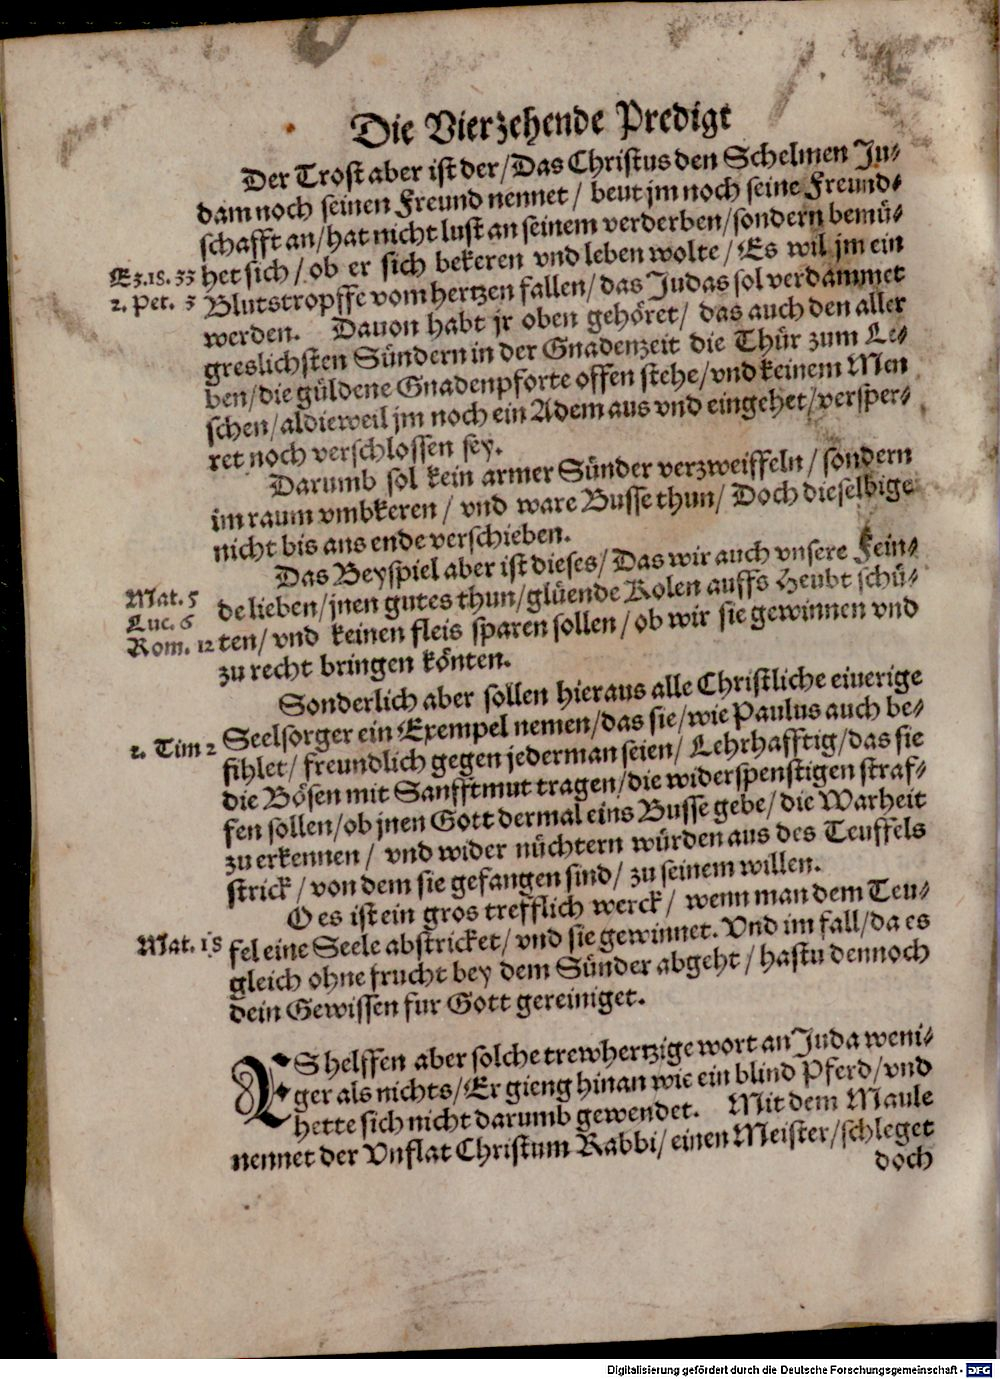 Die Vierzehende Predigt
Der Trost aber ist der/Das Christus den Schelmen Ju-
dam noch seinen Freund nennet/ beut jm noch seine Freund-
schafft an/hat nicht lust an seinem verderben/sondern bemü-
Ez. 18. 33 het sich/ ob er sich bekeren vnd leben wolte/ Es wil jm ein
2. Pet. 3 Blutstropffe vom hertzen fallen/das Judas sol verdammet
werden. Dauon habt jr oben gehöret/ das auch den aller
greslichsten Sündern in der Gnadenzeit die Thür zum Le-
ben/die güldene Gnadenpforte offen stehe/vnd keinem Men
schen/aldieweil jm noch ein Adem aus vnd eingehet/versper-
ret noch verschlossen sey.
Darumb sol kein armer Sünder verzweiffeln/sondern
im raum vmbkeren/ vnd ware Busse thun/ Doch dieselbige
nicht bis ans ende verschieben.
Das Beyspiel aber ist dieses/Das wir auch vnsere Fein-
Mat. 5
de lieben/jnen gutes thun/glüende Kolen auffs Heubt schü-
Luc. 6
Rom. 12 ten/ vnd keinen fleis sparen sollen/ob wir sie gewinnen vnd
zu recht bringen könten.
Sonderlich aber sollen hieraus alle Christliche eiuerige
2. Tim 2 Seelsorger ein Exempel nemen/das sie/wie Paulus auch be-
fihlet/ freundlich gegen jederman seien/ Lehrhafftig/das sie
die Bösen mit Sanfftmut tragen/die widerspenstigen straf-
fen sollen/ob jnen Gott dermal eins Busse gebe/die Warheit
zu erkennen/ vnd wider nüchtern würden aus des Teuffels
strick/von dem sie gefangen sind/ zu seinem willen.
O es ist ein gros trefflich werck/ wenn man dem Teu-
Mat. 18 fel eine Seele abstricket/vnd sie gewinnet. Vnd im fall/da es
gleich ohne frucht bey dem Sünder abgeht/hastu dennoch
dein Gewissen fur Gott gereiniget.
ES helffen aber solche trewhertzige wort an Juda weni-
ger als nichts/Er gieng hinan wie ein blind Pferd/vnd
hette sich nicht darumb gewendet. Mit dem Maule
nennet der Vnflat Christum Rabbi/einen Meister/schleget
doch
Digitalisierung gefördert durch die Deutsche Forschungsgemeinschaft - DFG